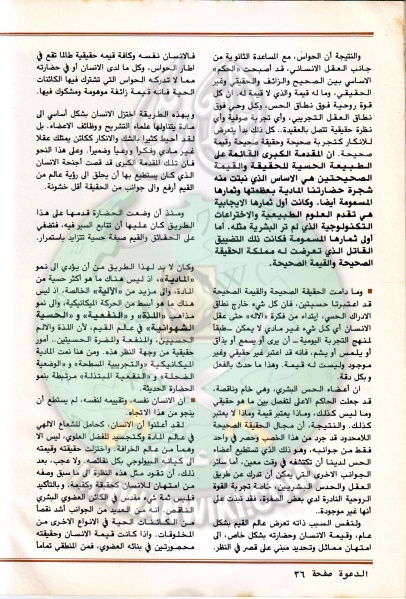 والنتيجة أن الحواس، مع المساعدة الثانوية من
جانب العقل الانساني، قد أصبحت «الحكم»
الاساسي بين الصحيح والزائف والحقيقي وغير
الحقيقي. وما له قيمة والذي لا قيمة له. ان كل
قوة روحية فوق نطاق الحس، وكل وحي فوق
نطاق العقل التجريبي، وأي تجربة صوفية وأي
نظرة حقيقية تتصل بالعقيدة.. كل ذلك بدأ يتعرض
للانكار كتجربة صحيحة وحقيقة صحيحة وقيمة
صحيحة. ان المقدمة الكبرى القائمة على
الطبيعة الحسية للحقيقة والقيمة
الصحيحتين هي الاساس الذي نبتت منه
شجرة حضارتنا المادية بعظمتها وثمارها
المسمومة أيضا. وكانت أول ثمارها الايجابية
هي تقدم العلوم الطبيعية والاختراعات
التكنولوجية الذي لم تر البشرية مثله. أما
أولى ثمارها المسمومة فكانت ذلك التضييق
القاتل الذي تعرضت له مملكة الحقيقة
الصحيحة والقيمة الصحيحة.
وما دامت الحقيقة الصحيحة والقيمة الصحيحة
قد اعتبرتا حسيتين، فان كل شيء خارج نطاق
الادراك الحسي، ابتداء من فكرة «الاله» حتى عقل
الانسان أي كل شيء غير مادي لا يمكن – طبقا
لمنهج التجربة اليومية – أن يرى أو يسمع أو يذاق
أو يلمس أو يشم، فانه قد اعتبر غير حقيقي وغير
موجود وليست له قيمة. وهذا ما حدث بالفعل
وبكل دقة.
ان أعضاء الحس البشري، وهي خام وناقصة،
قد جعلت الحاكم الاعلى لتفصل بين ما هو حقيقي
وما ليس كذلك، وماذا يعتبر قيمة وماذا لا يعتبر
كذلك. والنتيجة، أن مجال الحقيقة الصحيحة
اللامحدود قد جرد من هذا الخصب وحصر في واحد
فقط من جوانبه، وهو ذلك الذي تستطيع أعضاء
الحس لدينا أن تكتشفه في وقت معين. أما سائر
الجوانب الاخرى التي يمكن أن تدرك عن طريق
العقل والحدس البشريين، خاصة تجربة القوة
الروحية النادرة لدى بعض الصفوة، فقد نبذت على
أنها غير موجودة..
ولنفس السبب ذاته تعرض عالم القيم بشكل
عام، وقيمة الانسان وحضارته بشكل خاص، الى
امتهان مماثل وتحديد مبني على قصر في النظر.
فالانسان نفسه وكافة قيمه حقيقية طالما تقع في
اطار الحواس، وكل ما لدى الانسان أو في حضارته
مما لا تدركه الحواس التي تشترك فيها الكائنات
الحية فانه قيمة زائفة موهومة ومشكوك فيها.
وبهذه الطريقة اختزل الانسان بشكل أساسي الى
مادة يتناولها علماء التشريح ووظائف الاعضاء. بل
غير مادي وذاتا ووعيا وضميرا. وعلى هذا النحو
فان تلك المقدمة الكبرى قد قصت أجنحة الانسان
الذي كان يستطيع بها أن يحلق الى رؤية عالم من
القيم أرفع والى جوانب من الحقيقة أقل خشونة.
ومنذ أن وضعت الحضارة قدمها على هذا
الطريق كان عليها أن تتابع السير فيه، فتضفي
على الحقائق والقيم صبغة حسية تتزايد باستمرار.
وكان لا بد لهذا الطريق من أن يؤدي الى نمو
«المادية»، اذ ليس هناك ما هو أكثر حسية من
المادة، والى مزيد من «الآلية» الخالصة، اذ ليس
هناك ما هو أبسط من الحركة الميكانيكية، والى نمو
مذاهب «اللذة» و«النفعية» و«الحسية
الشهوانية» في عالم القيم، لأن اللذة والالم
الحسيين، والمنفعة والضرة الحسيتين.. أمور
حقيقية من وجهة النظر هذه. ومن هنا نمت المادية
الميكانيكية «والتجريبية المسطحة» و«الوضعية
الضحلة» و«النفعية المبتذلة» مرتبطة بنمو
الحضارة الحديثة.
ان الانسان نفسه، وتقييمه لنفسه، لم يستطع أن
ينجو من هذا الاتجاه.
لقد أعلنوا أن الانسان، كحامل للشعاع الالهي
في عالم المادة وكتجسيد للفضل العلوي، ليس الا
وهما من عالم الخرافة. واختزلت حقيقته وقيمته
الى كيانه البيولوجي بكل نقائصه. ولا عجب، بعد
ذلك، أن تقود مثل هذه النظرة الى ما سبق وصفه
من امتهان للانسان كحقيقة وكقيمة. وبالتأكيد
فليس ثمة شيء مقدس في كائن العضوي البشري
الناقص. انه من العديد من الجوانب أشد نقصا
من الكائنات الحية في الانواع الاخرى من
المخلوقات. واذا كانت قيمة الانسان وحقيقته
محصورتين في بنائه العضوي، فمن المنطقي تماما
الدعوة صفحة ٣٦